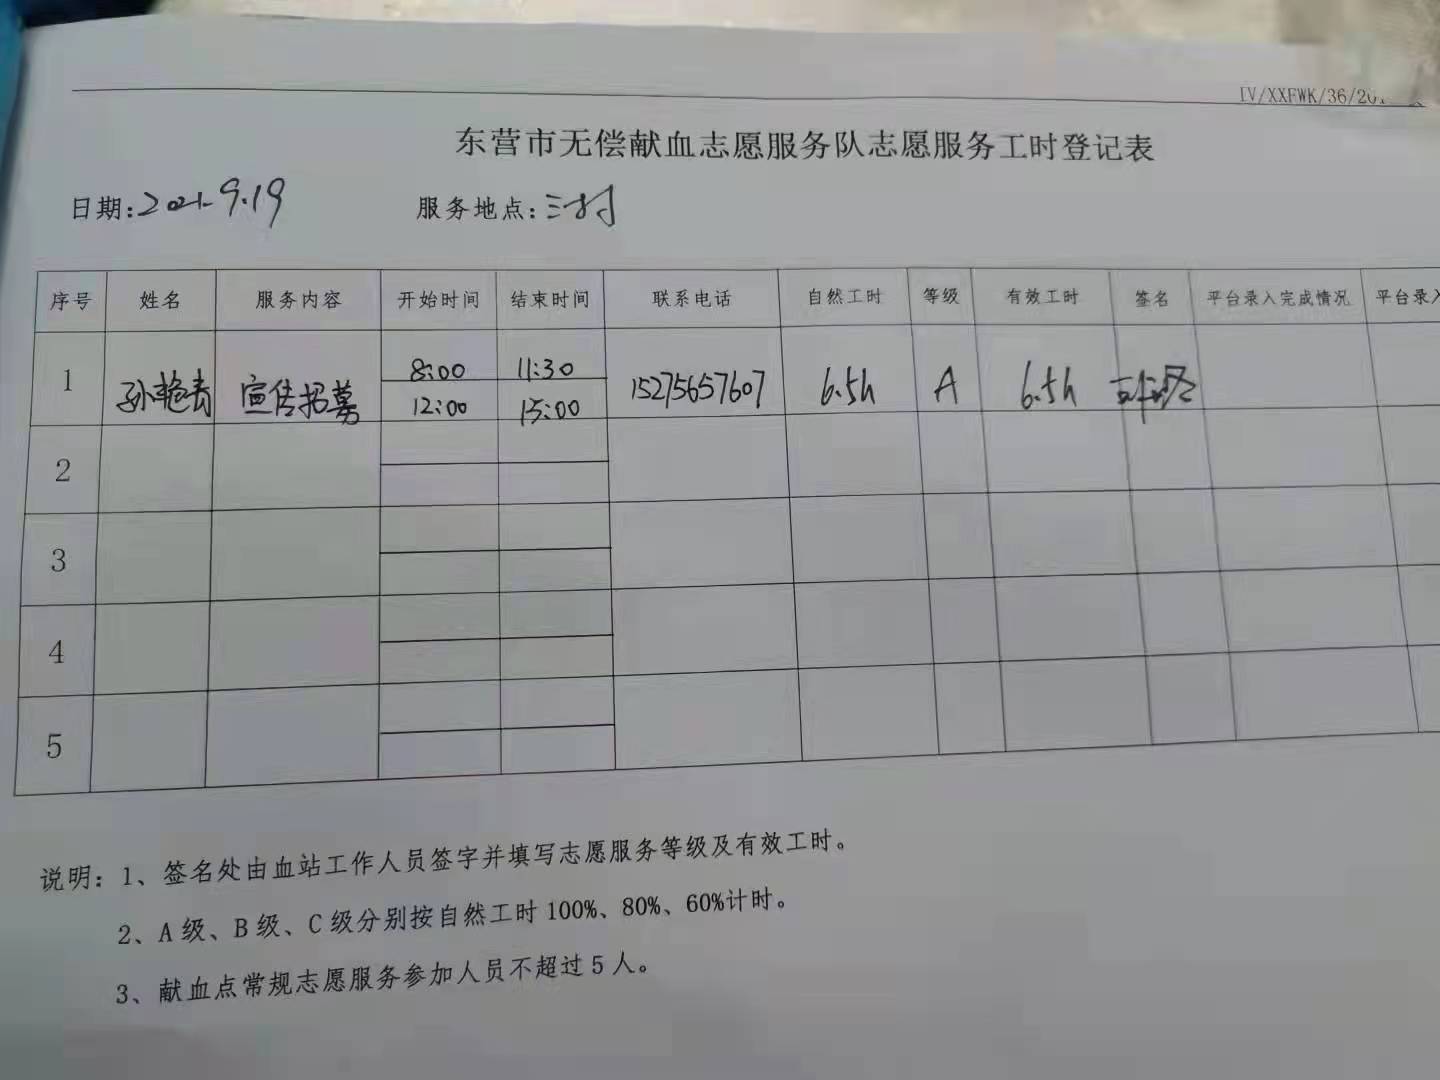 IV/XXFWK/36/20
东营市无偿献血志愿服务队志愿服务工时登记表
日期:2021.9.19 服务地点:三村
序号 姓名 服务内容 开始时间 结束时间 联系电话 自然工时 等级 有效工时 签名 平台录入完成情况 平台录入
1 孙艳青 宣传招募 8:00 11:30 15275657607 6.5h A 6.5h
12:00 15:00
2
3
4
5
说明:1、签名处由血站工作人员签字并填写志愿服务等级及有效工时。
2、A级、B级、C级分别按自然工时100%、80%、60%计时。
3、献血点常规志愿服务参加人员不超过5人。